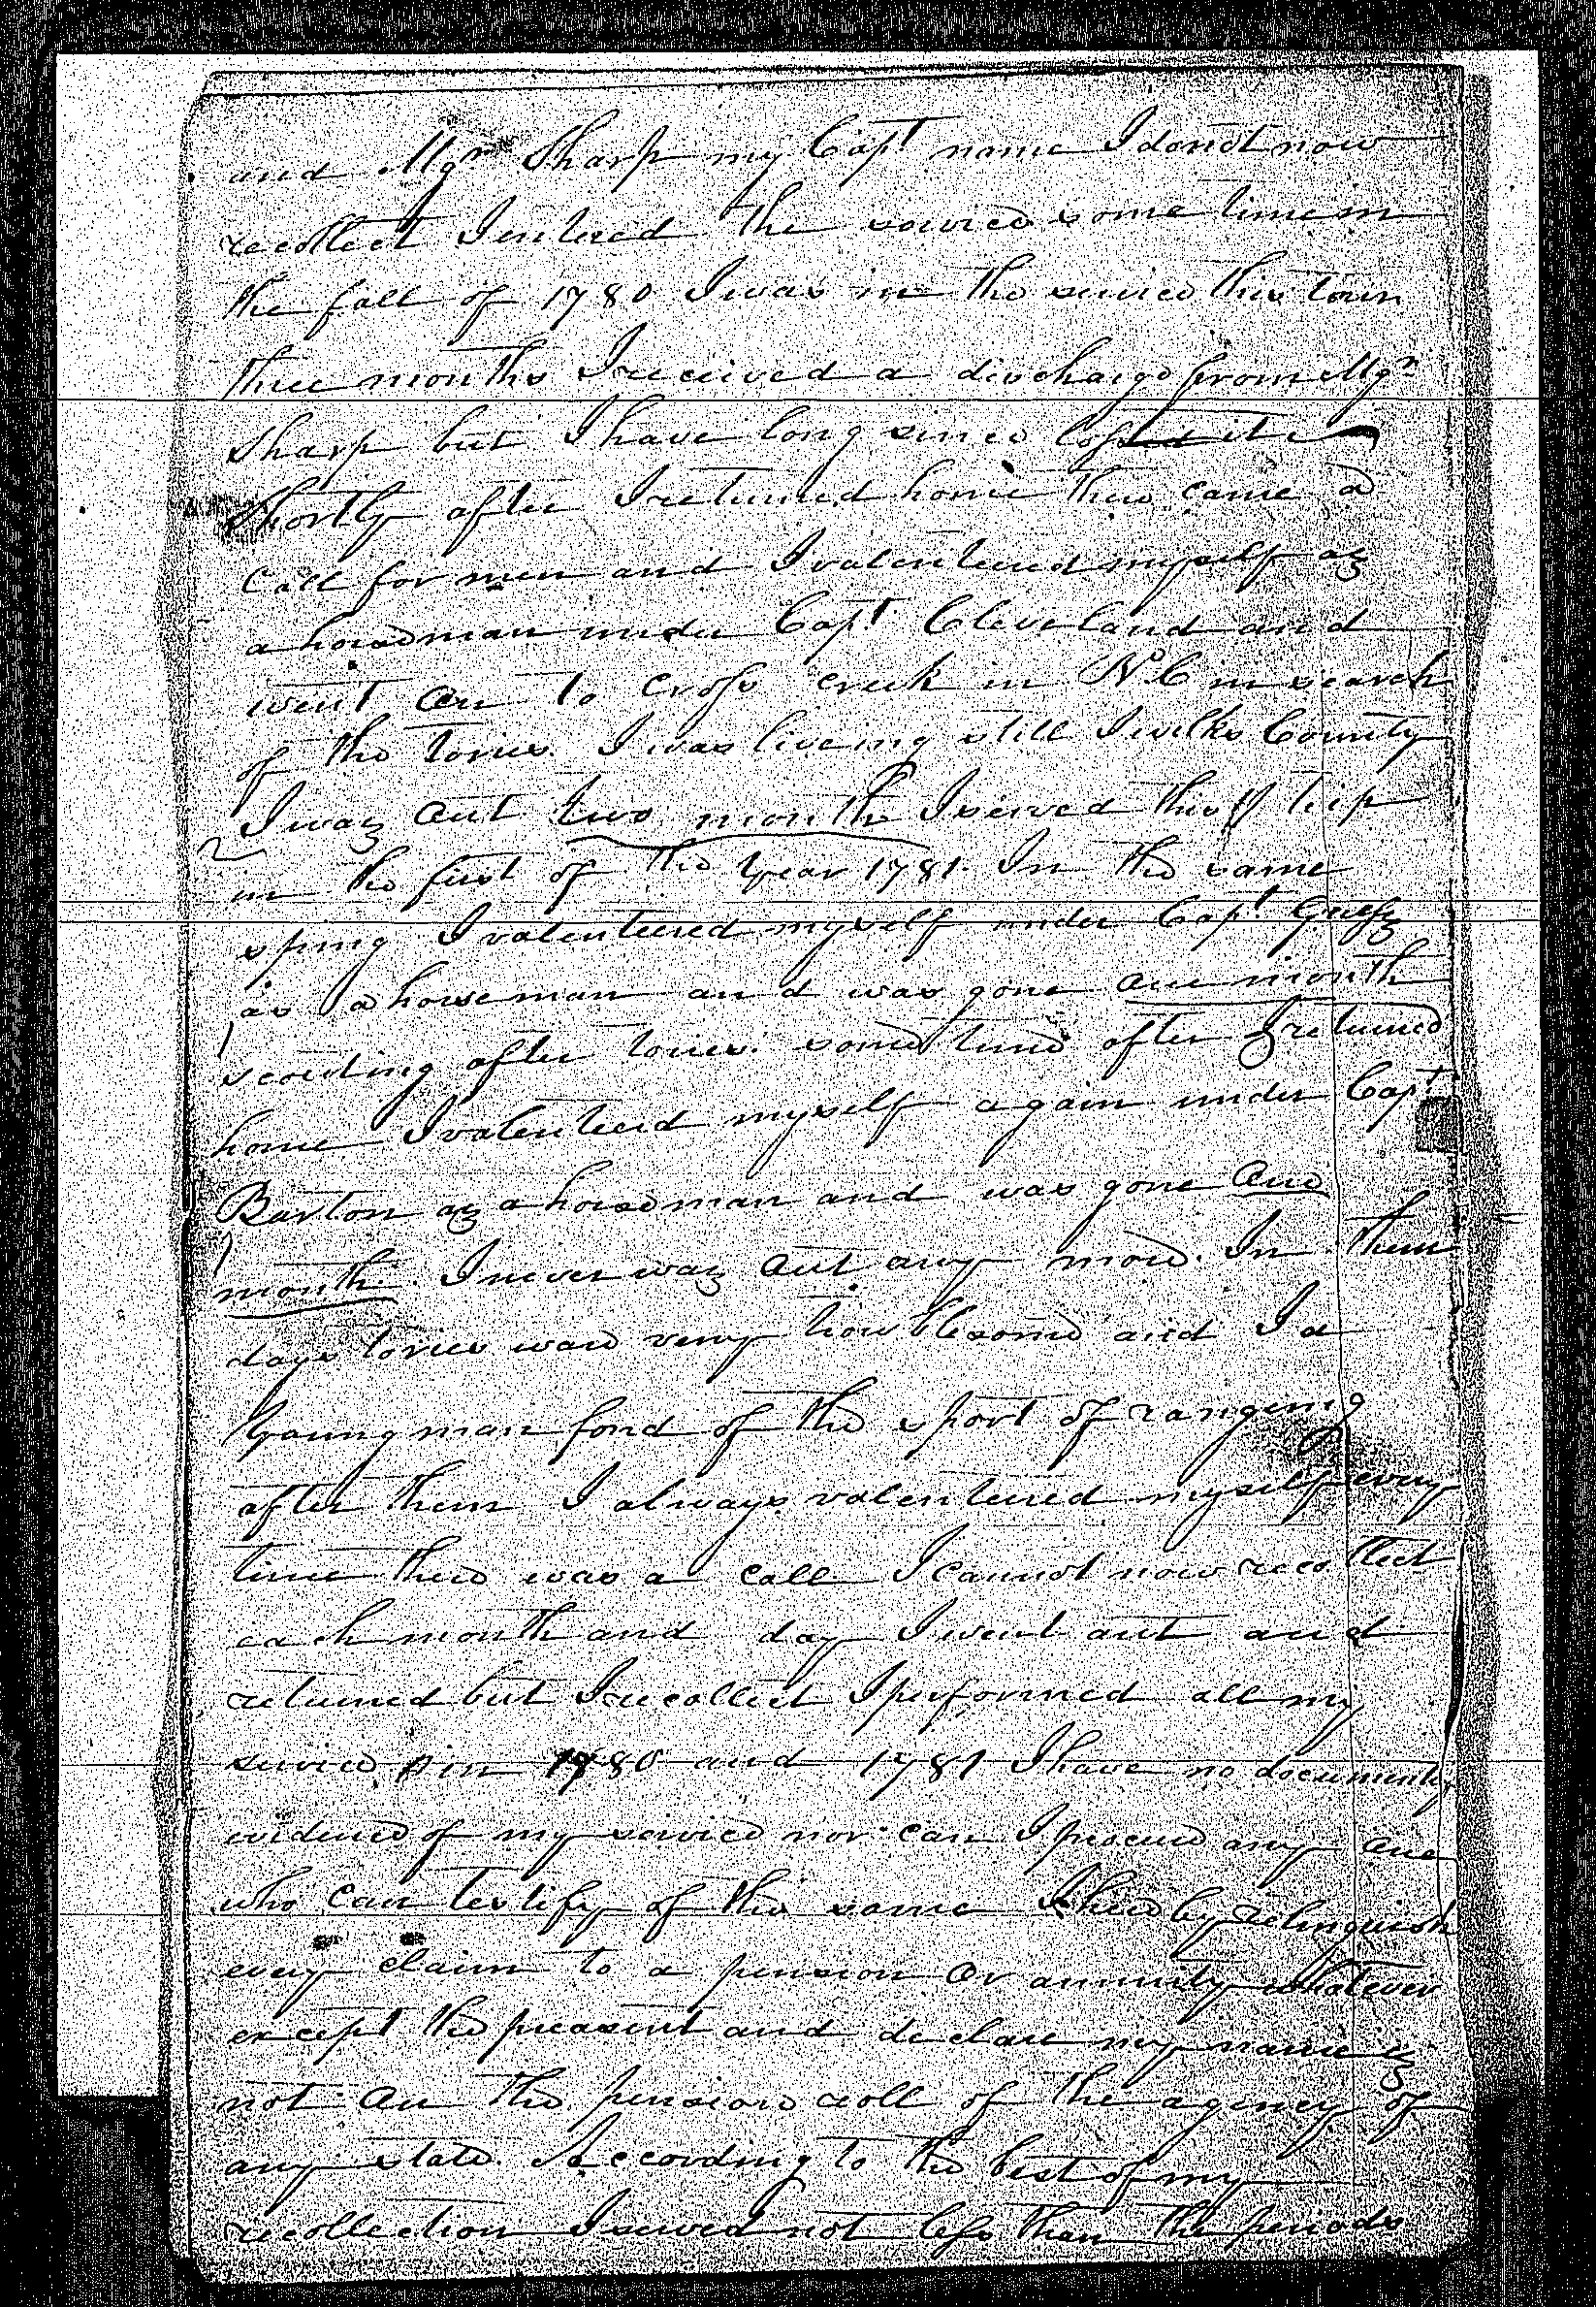 and Mgr Sharp my Capt name I donot now
recollect I entered the service some time in
the fall of 1780 I was in the service this tour
three months I received a discharge from Mgr
Sharp but I have long since lost it
Shortly after I returned home there came a
call for men and I valenteered myself as
a horseman under Capt Cleveland and
went on to Cross creek in N.C in search
of the tories. I was liveing still I wilks County
I was out two months I served this trip
in the first of the year 1781. In the same
spring I valenteered myself under Capt
as a horseman and was gone one month
scouting after tories. some time after I returned
home I valenteered myself again under Capt
Barton as a horseman and was gone one
month. I never was out any more. In them
days tories ware very troublesome and I a
Young man fond of the sport of rangeing
after them I always valenteered myself every
time there was a call I cannot now recollect
each month and day I went out and
returned but I recollect I performed all my
service in 1780 and 1781 I have no documentry
evidence of my service nor can I procure any one
who can testify of the same I hereby relinquish
every claim to a pension or annuity whatever
except the preasent and declare my name is
not on the pension roll of the agency of
any state. According to the best of my
recollection I served not less than the periods